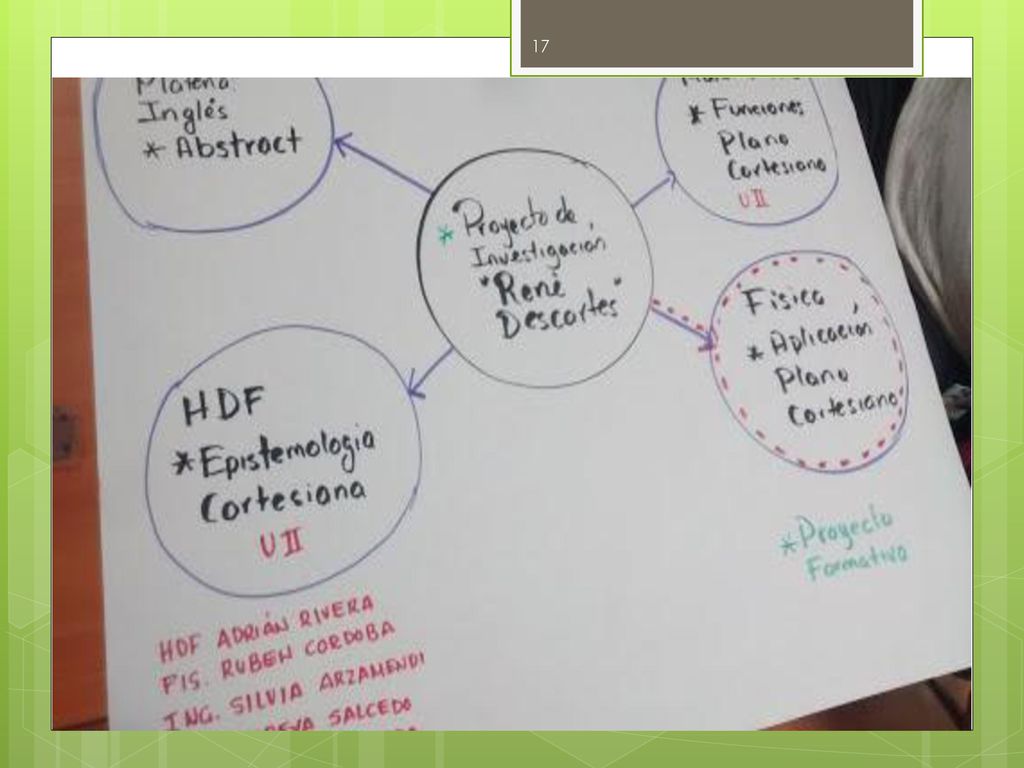 17
Inglés
* Abstract
* Funciones
Plano
Cartesiano
UII
* Proyecto de
Investigación
"René
Descartes"
Física
* Aplicación
Plano
Cartesiano
HDF
* Epistemologia
Cartesiana
UII
* Proyecto
Formativo
HDF ADRIÁN RIVERA
FIS. RUBEN CORDOBA
ING. SILVIA ARZAMENDI
SALCEDO